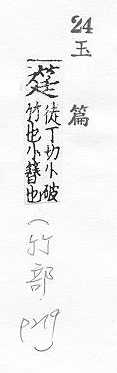 24
玉篇
莛徒丁切小破
竹也小簪也
(竹部.
P279)